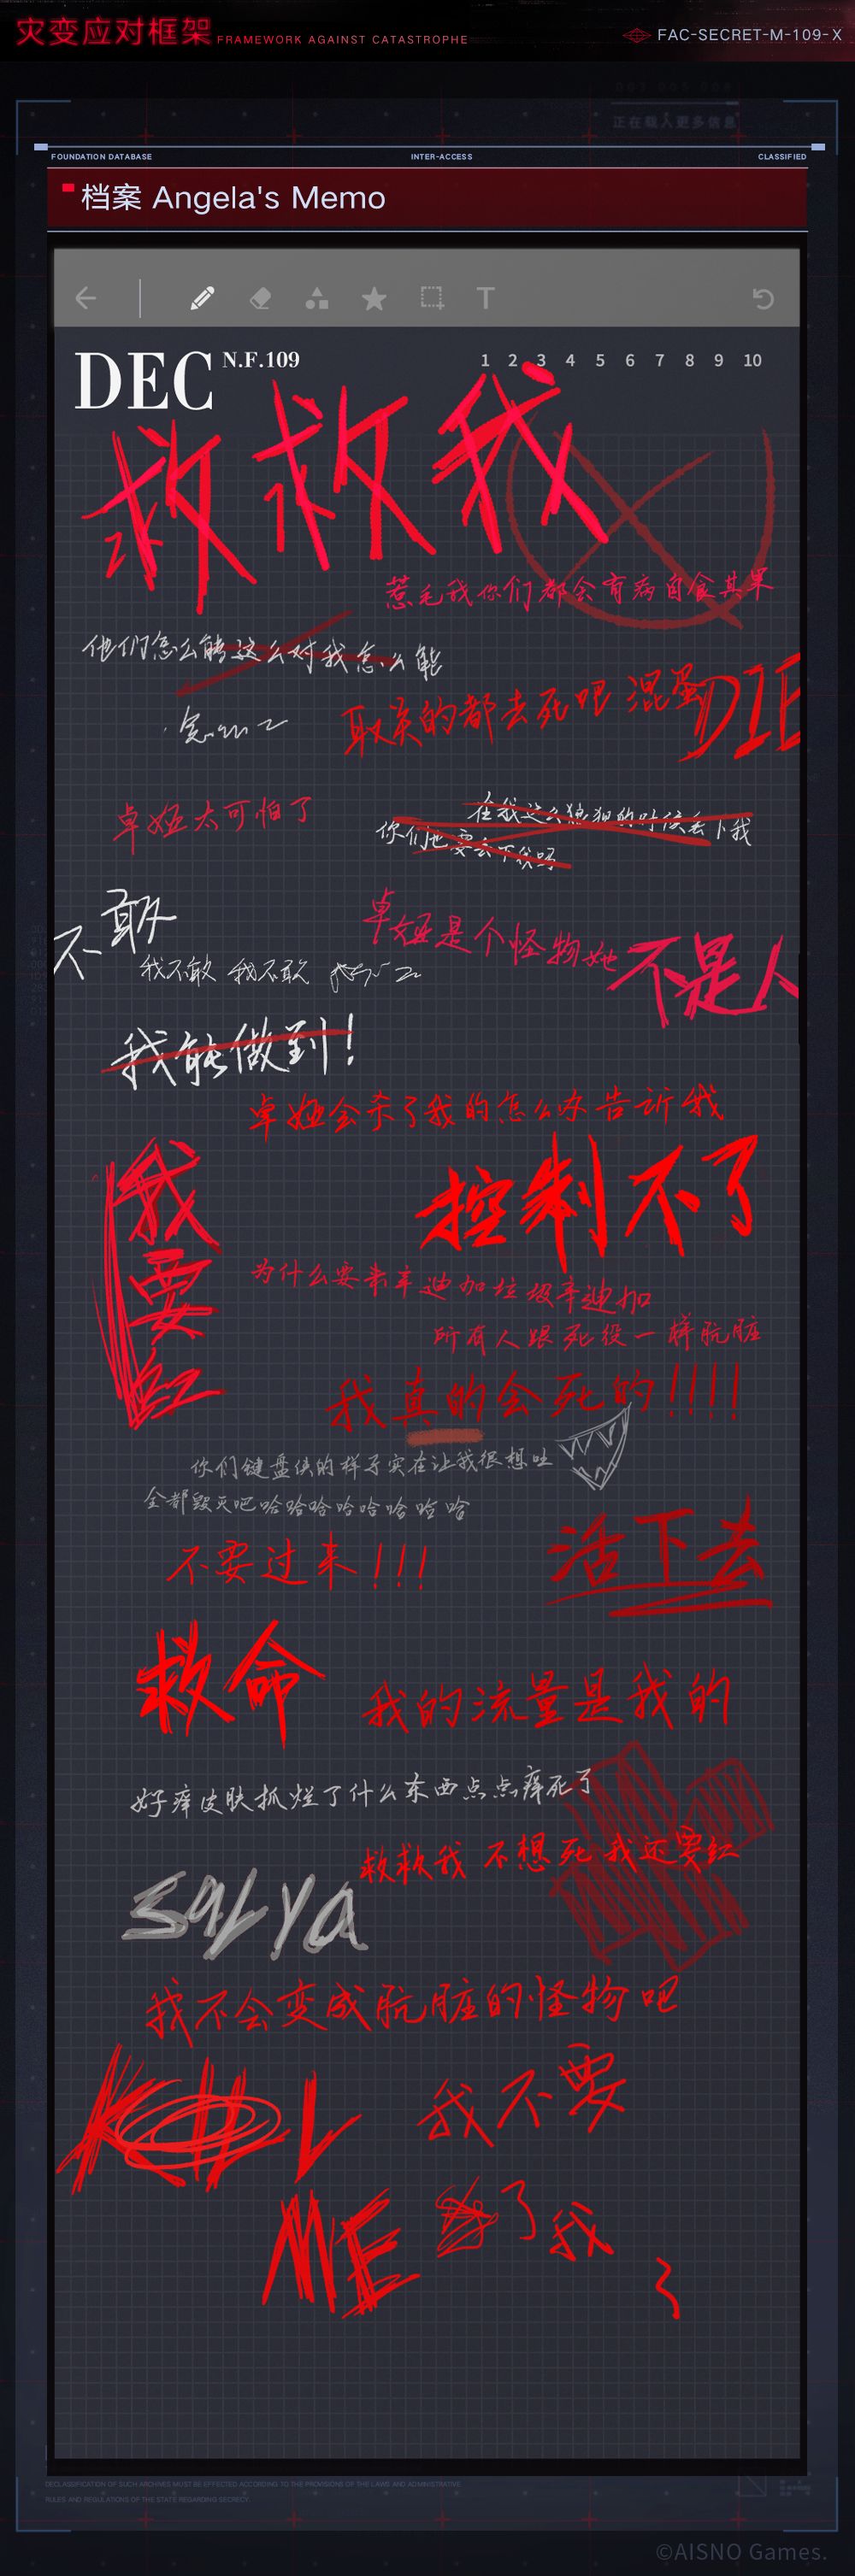 灾变应对框架 FRAMEWORK AGAINST CATASTROPHE
FAC-SECRET-M-109-X
正在载入更多信息
FOUNDATION DATABASE INTER-ACCESS CLASSIFIED
档案 Angela's Memo
T
DEC N.F.109
1 2 3 4 5 6 7 8 9 10
救救我
惹毛我你们都会有病自食其果
他们怎么能这么对我怎么能
取关的都去死吧 混蛋DIE
卓娅太可怕了
在我这么狼狈的时候丢下我
你们也要丢下我吗
不敢
卓娅是个怪物她不是人
我不敢 我不敢
我能做到!
卓娅会杀了我的怎么办告诉我
我要红
控制不了
为什么要来辛迪加垃圾辛迪加
所有人跟死役一样肮脏
我真的会死的!!!!
你们键盘侠的样子实在让我很想吐
全都毁灭吧哈哈哈哈哈哈哈哈
不要过来!!!
活下去
救命
我的流量是我的
好痒皮肤抓烂了什么东西点点痒死了
救救我 不想死 我还要红
我不会变成肮脏的怪物吧
我不要
ME
了我
DECLASSIFICATION OF SUCH ARCHIVES MUST BE EFFECTED ACCORDING TO THE PROVISIONS OF THE LAWS AND ADMINISTRATIVE
RULES AND REGULATIONS OF THE STATE REGARDING SECRECY.
©AISNO Games.